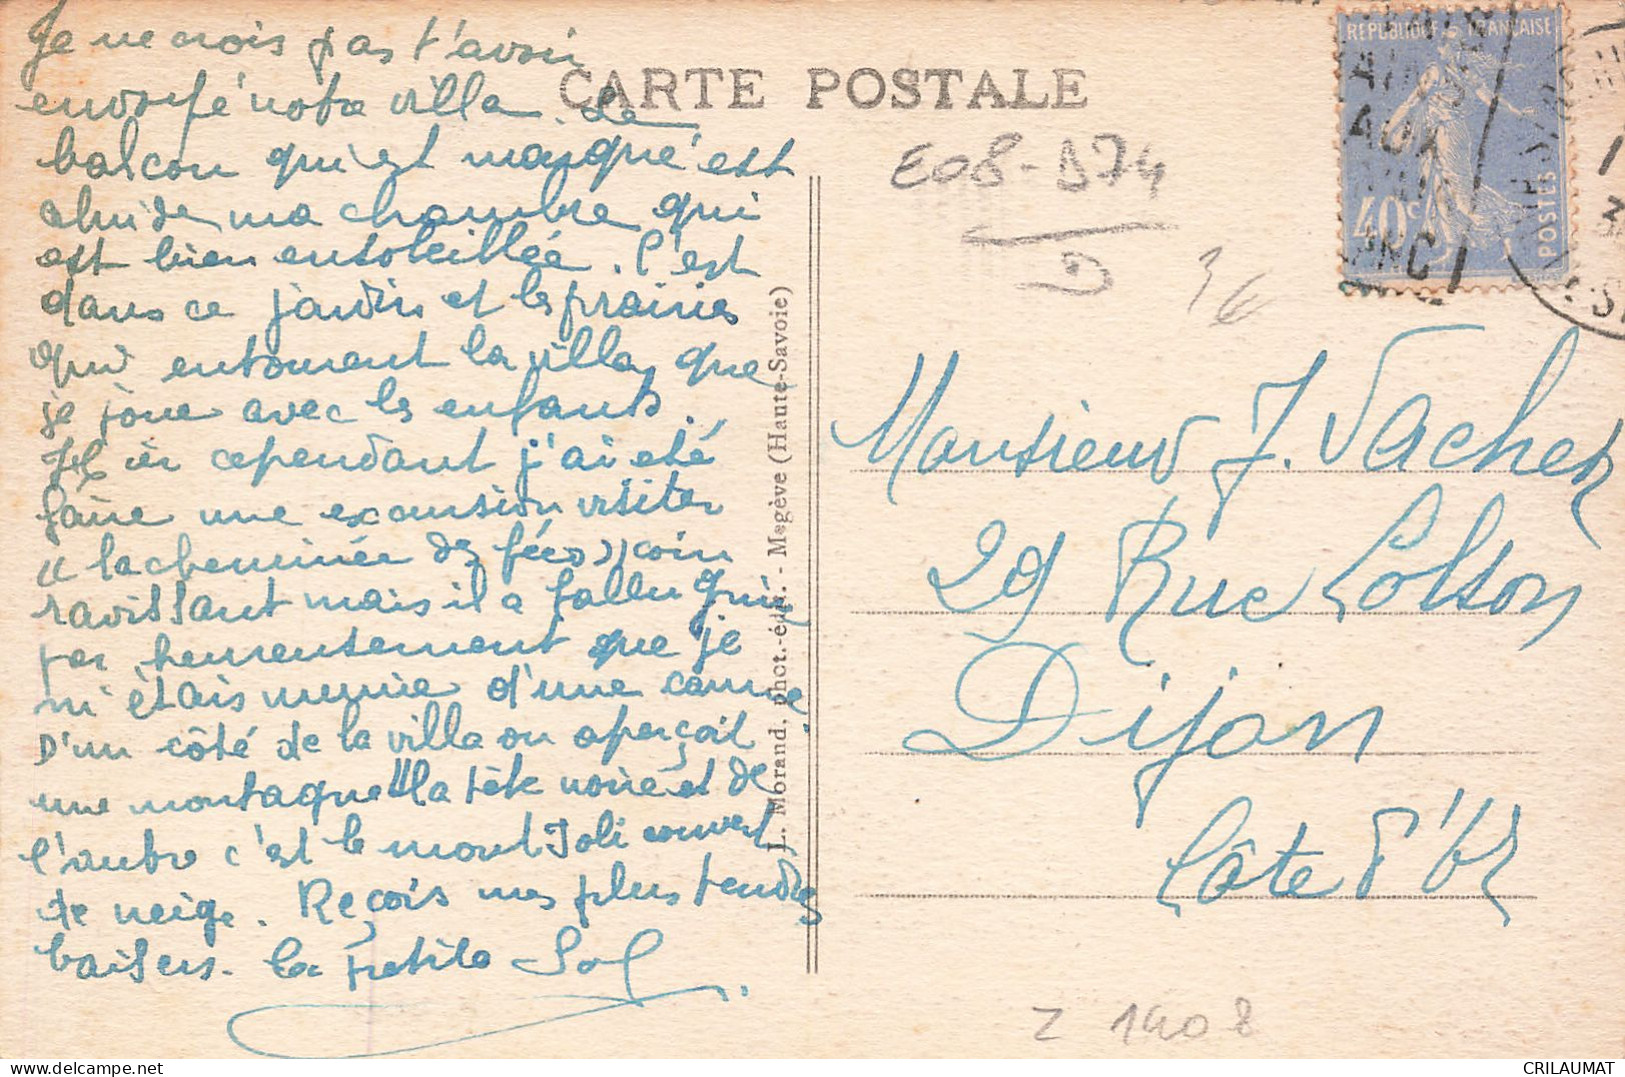 Je ne crois pas t'avoir
envoyé notre villa. Le
balcon qui est marqué est
celui de ma chambre qui
est bien ensoleillée. C'est
dans ce jardin et les prairies
qui entourent la villa, que
je joue avec les enfants.
Hier cependant j'ai été
faire une excursion visiter
"la cheminée des fées" coin
ravissant mais il a fallu grim
per heureusement que je
m'étais munie d'une canne.
D'un côté de la villa on aperçoit
une montagne "la tête noire et de
l'autre c'est le mont Joli couvert
de neige. Reçois mes plus tendres
baisers. la petite Sol
CARTE POSTALE
E08-D74
D
1€
J. Morand, phot.-édit. - Megève (Haute-Savoie)
REPUBLIQUE FRANÇAISE
40c
POSTES
AUX
Monsieur J. Vacher
29 Rue Colson
Dijon
Côte d'Or
Z 1908
CRILAUMAT